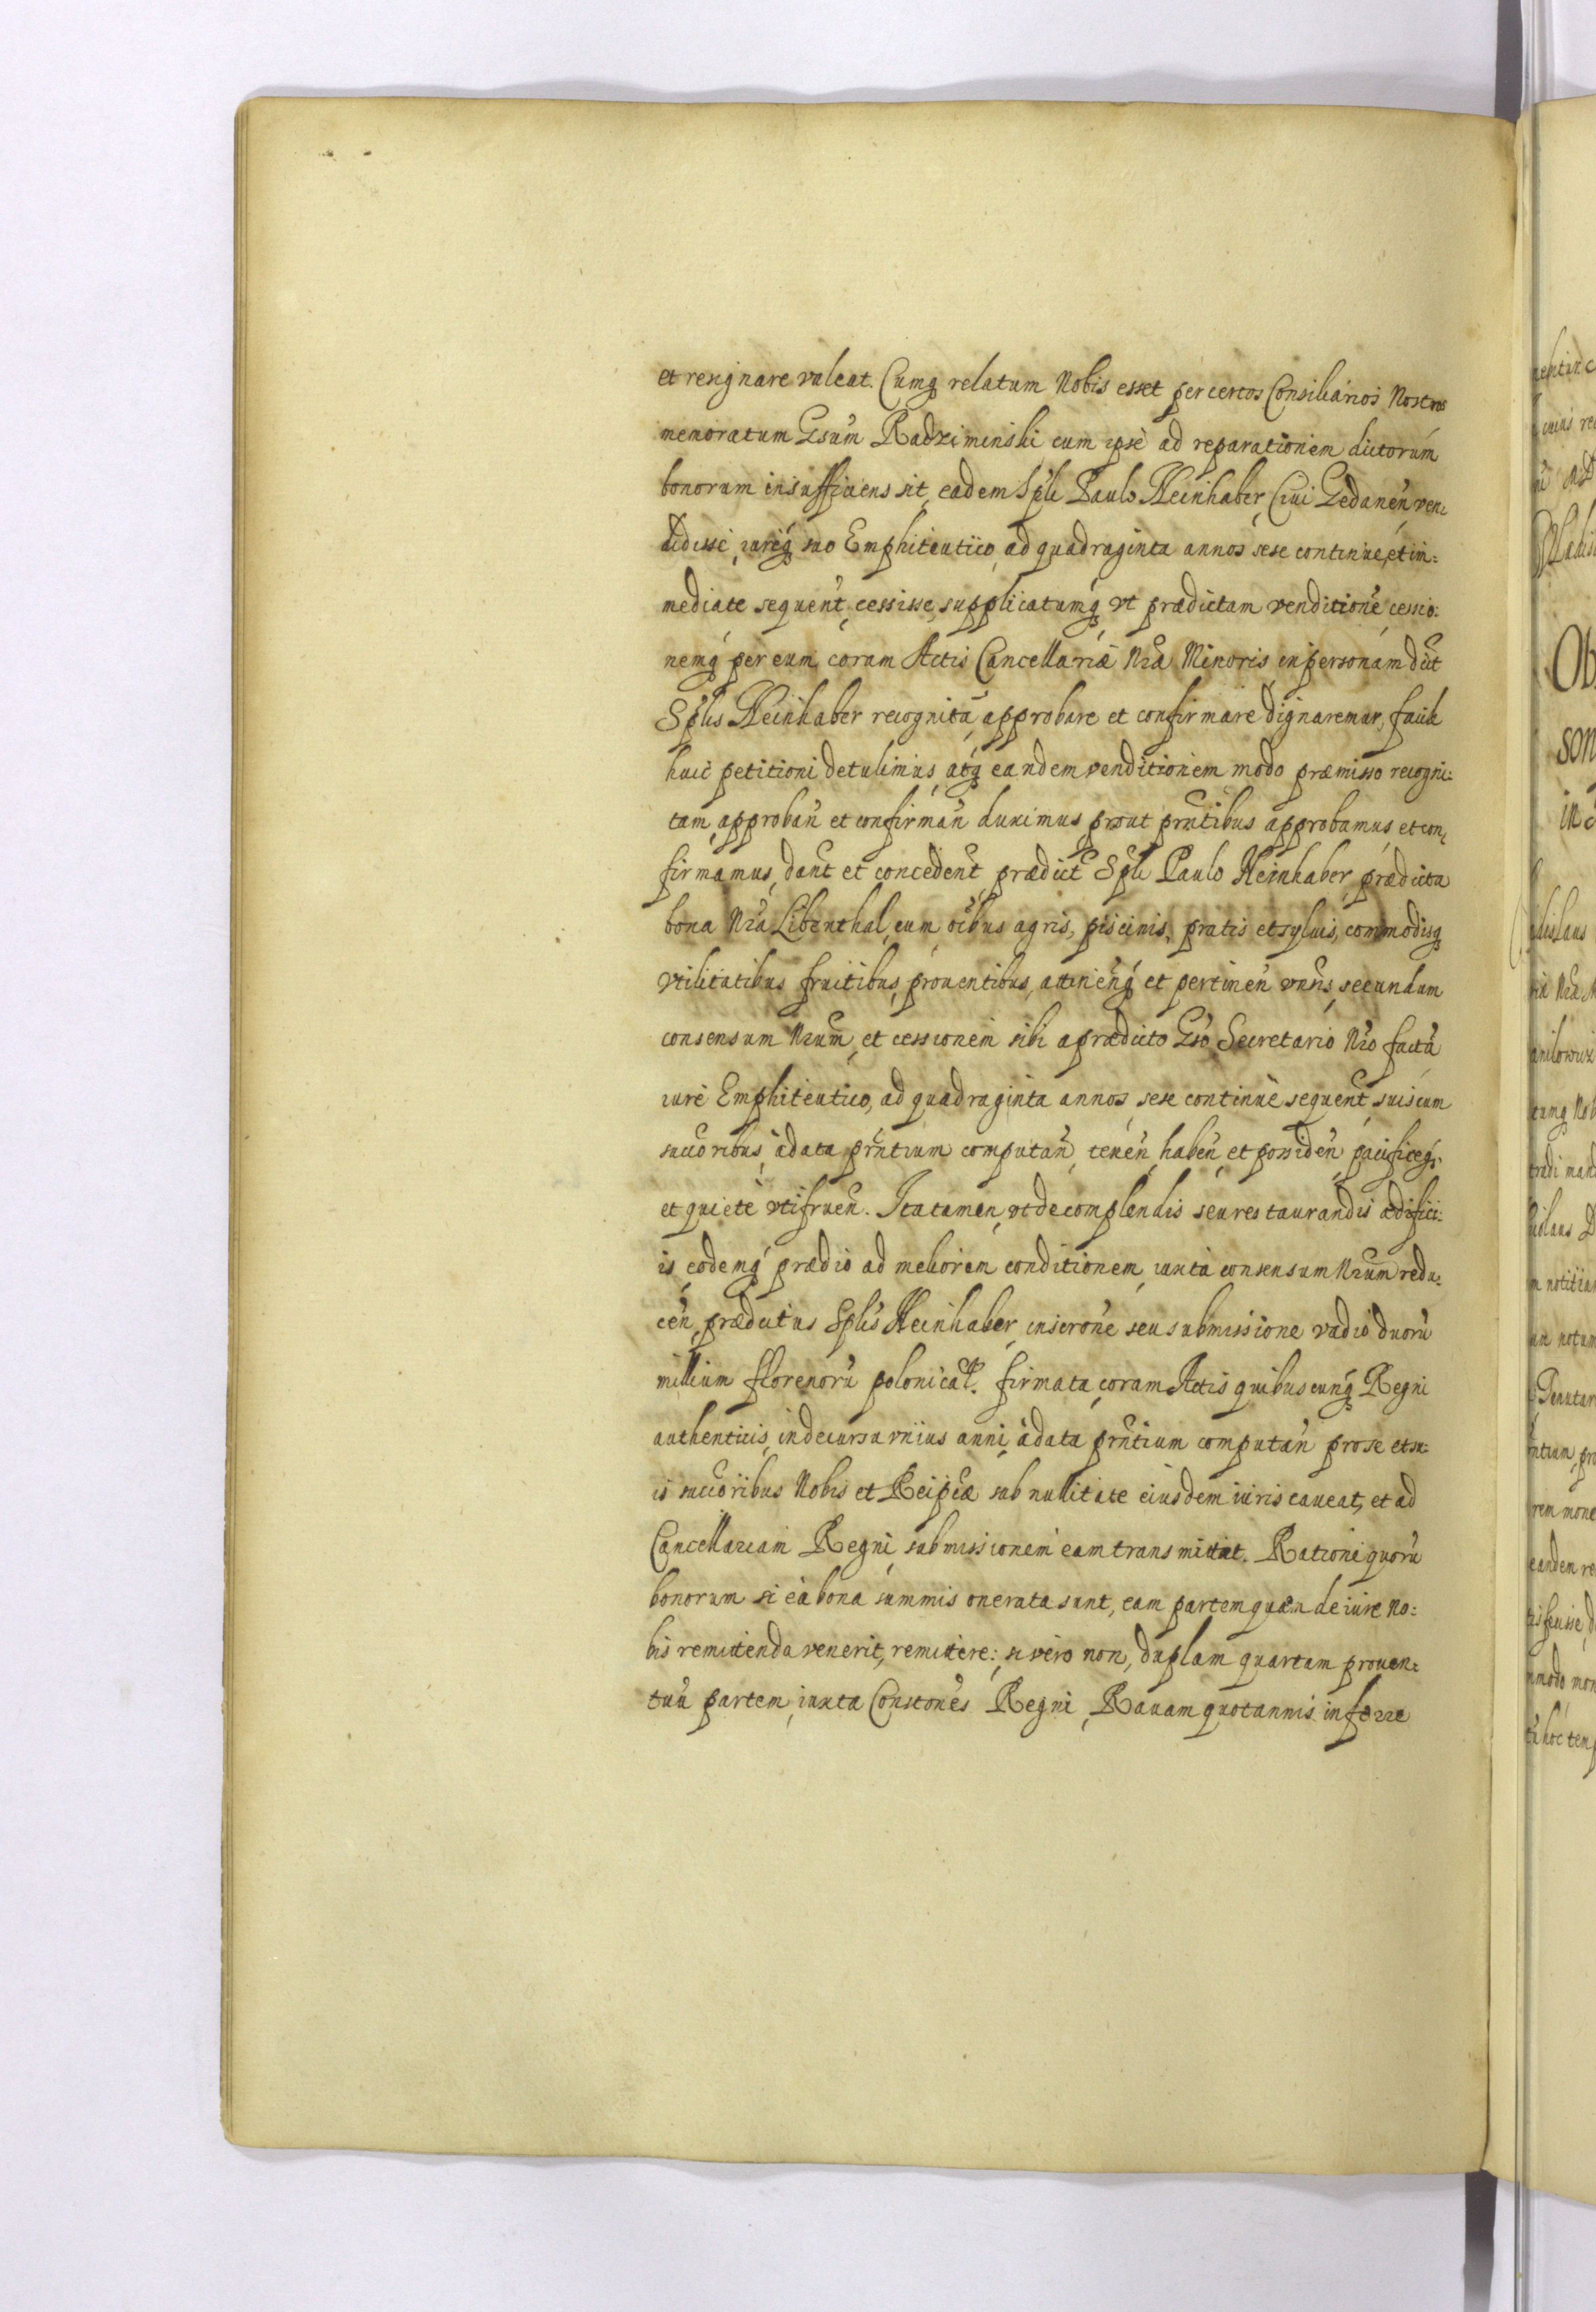 et resignare valeat. Cumq relatum Nobis esset per certos Consiliarios Nostros
memoratum Gsum Radziminski cum ipse ad reparationem dictorum
bonorum insufficiens sit, eadem Spli Paulo Heinhaber, Ciui Gedanen ven:
didisse, iureq suo Emphiteutico, ad quadraginta annos sese continue, et im:
mediate sequent, cessisse, supplicatumq, vt prædictam venditione cessio:
nemq per eum, coram Actis Cancellariæ Nræ Minoris, in personam dict
Splis Heinhaber recognita, approbare et confirmare dignaremur, facile
huic petitioni detulimus, atq eandem venditionem modo præmisso recogni:
tam, approban et confirman duximus, prout prntibus approbamus et con,
firmamus, dant et concedent, prædict Spli Paulo Heinhaber, prædicta
bona Nra Libenthal, cum oibus agris, piscinis, pratis et syluis, commodisq
vtilitatibus fructibus, prouentibus, attinenq et pertinen vnis, secundum
consensum Nrum, et cessionem sibi a prædicto Gso Secretario Nro facta
iure Emphiteutico, ad quadraginta annos sese continuè sequent, suis cum
succoribus, à data prntium computan, tenen, haben, et possiden, pacificeq,
et quietè vtifruen. Ita tamen, vt de complendis seu restaurandis ædifici:
is, eodemq prædio ad meliorem conditionem, iuxta consensum Nrum redu:
cen, prædictus Splis Heinhaber, inscrone seu submissione vadio duoru
millium florenoru polonical. firmata, coram Actis quibuscunq Regni
authenticis, in decursu vnius anni, à data prntium computan pro se et su:
is succoribus Nobis et Reipcæ sub nullitate eiusdem iuris caueat, et ad
Cancellariam Regni, submissionem eam transmittat. Rationi quoru
bonorum si ea bona summis onerata sunt, eam partem quæ de iure No:
bis remittenda venerit, remittere: si vero non, duplam quartam prouen:
tuu partem, iuxta Constones Regni, Rauam quotannis inferre